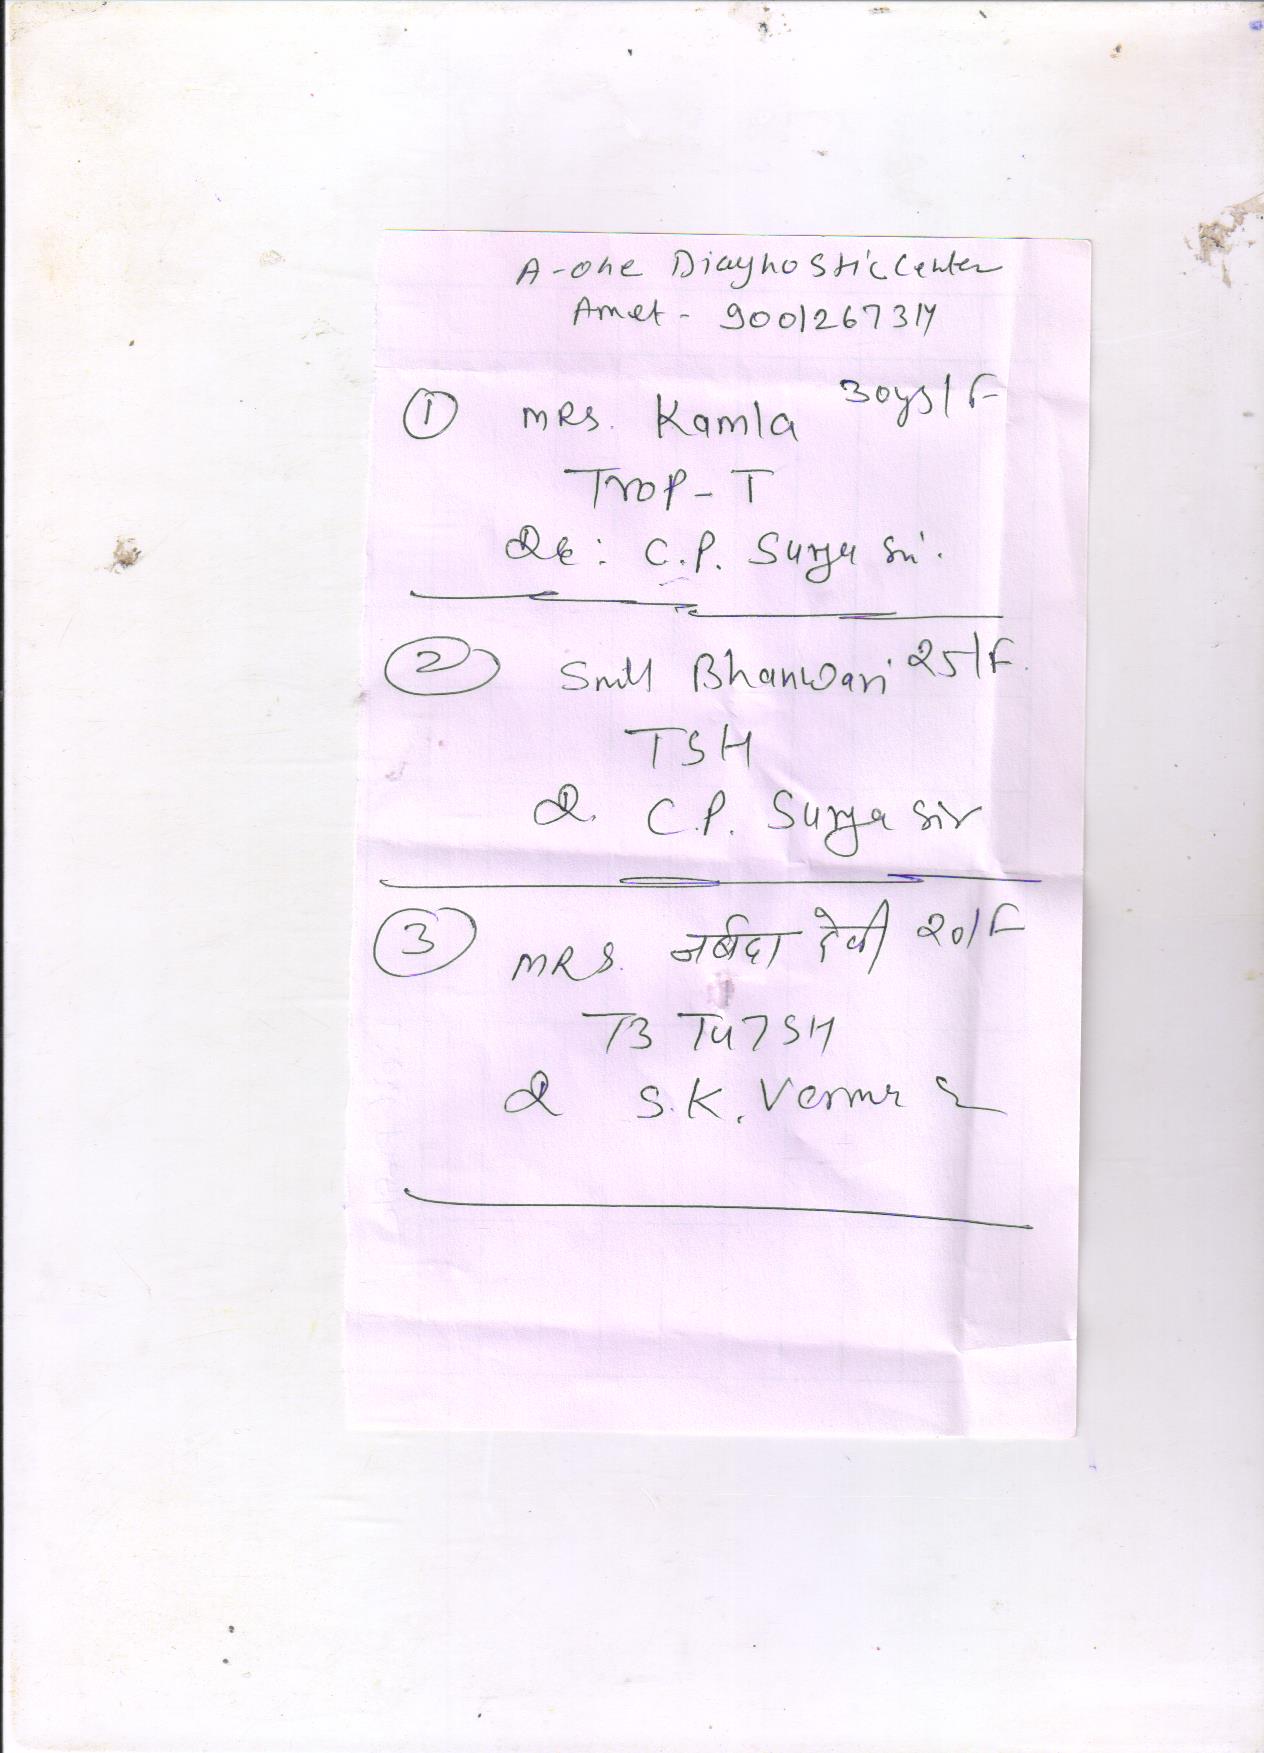 A-one Diagnostic Center
Amet - 9001267314
① MRS. Kamla 30ys/F
Trop-T
Dr: C.P. Surya Sir.
② Smt Bhanwari 25/F.
TSH
Dr. C.P. Surya Sir
③ MRS. नर्बदा देवी 20/F
T3 T4 TSH
Dr S.K. Verma